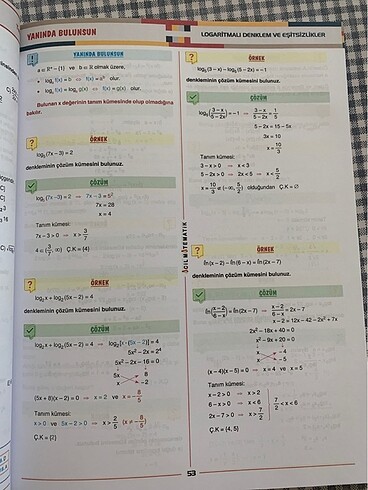 YANINDA BULUNSUN
LOGARİTMALI DENKLEM VE EŞİTSİZLİKLER
YANINDA BULUNSUN
a ∈ R⁺ – {1} ve b ∈ R olmak üzere,
• logₐ f(x) = b ⇔ f(x) = aᵇ olur.
• logₐ f(x) = logₐ g(x) ⇔ f(x) = g(x) olur.
Bulunan x değerinin tanım kümesinde olup olmadığına
bakılır.
ÖRNEK
log₅(7x – 3) = 2
denkleminin çözüm kümesini bulunuz.
ÇÖZÜM
log₅(7x – 3) = 2 ⇒ 7x – 3 = 5²
7x = 28
x = 4
Tanım kümesi:
7x – 3 > 0 ⇒ x > 3/7
4 ∈ (3/7, ∞) Ç.K = {4}
ÖRNEK
log₂x + log₂(5x – 2) = 4
denkleminin çözüm kümesini bulunuz.
ÇÖZÜM
log₂x + log₂(5x – 2) = 4 ⇒ log₂[x · (5x – 2)] = 4
5x² – 2x = 2⁴
5x² – 2x – 16 = 0
5x 8
x –2
(5x + 8)(x – 2) = 0 ⇒ x = 2 ve x = –8/5
Tanım kümesi:
x > 0 ve 5x – 2 > 0 ⇒ x > 2/5 (x ≠ –8/5)
Ç.K = {2}
ÖRNEK
log₅(3 – x) – log₅(5 – 2x) = –1
denkleminin çözüm kümesini bulunuz.
ÇÖZÜM
log₅((3 – x)/(5 – 2x)) = –1 ⇒ (3 – x)/(5 – 2x) = 1/5
5 – 2x = 15 – 5x
3x = 10
x = 10/3
Tanım kümesi:
3 – x > 0 ⇒ x < 3
5 – 2x > 0 ⇒ 2x < 5 ⇒ x < 5/2
x = 10/3 ∉ (–∞, 5/2) olduğundan Ç.K = Ø
ÖRNEK
ln(x – 2) – ln(6 – x) = ln(2x – 7)
denkleminin çözüm kümesini bulunuz.
ÇÖZÜM
ln((x – 2)/(6 – x)) = ln(2x – 7) ⇒ (x – 2)/(6 – x) = 2x – 7
x – 2 = 12x – 42 – 2x² + 7x
2x² – 18x + 40 = 0
x² – 9x + 20 = 0
x –4
x –5
(x – 4)(x – 5) = 0 ⇒ x = 4 ve x = 5
Tanım kümesi:
x – 2 > 0 ⇒ x > 2
6 – x > 0 ⇒ x < 6
2x – 7 > 0 ⇒ x > 7/2
7/2 < x < 6
Ç.K = {4, 5}
ACİL MATEMATİK
53